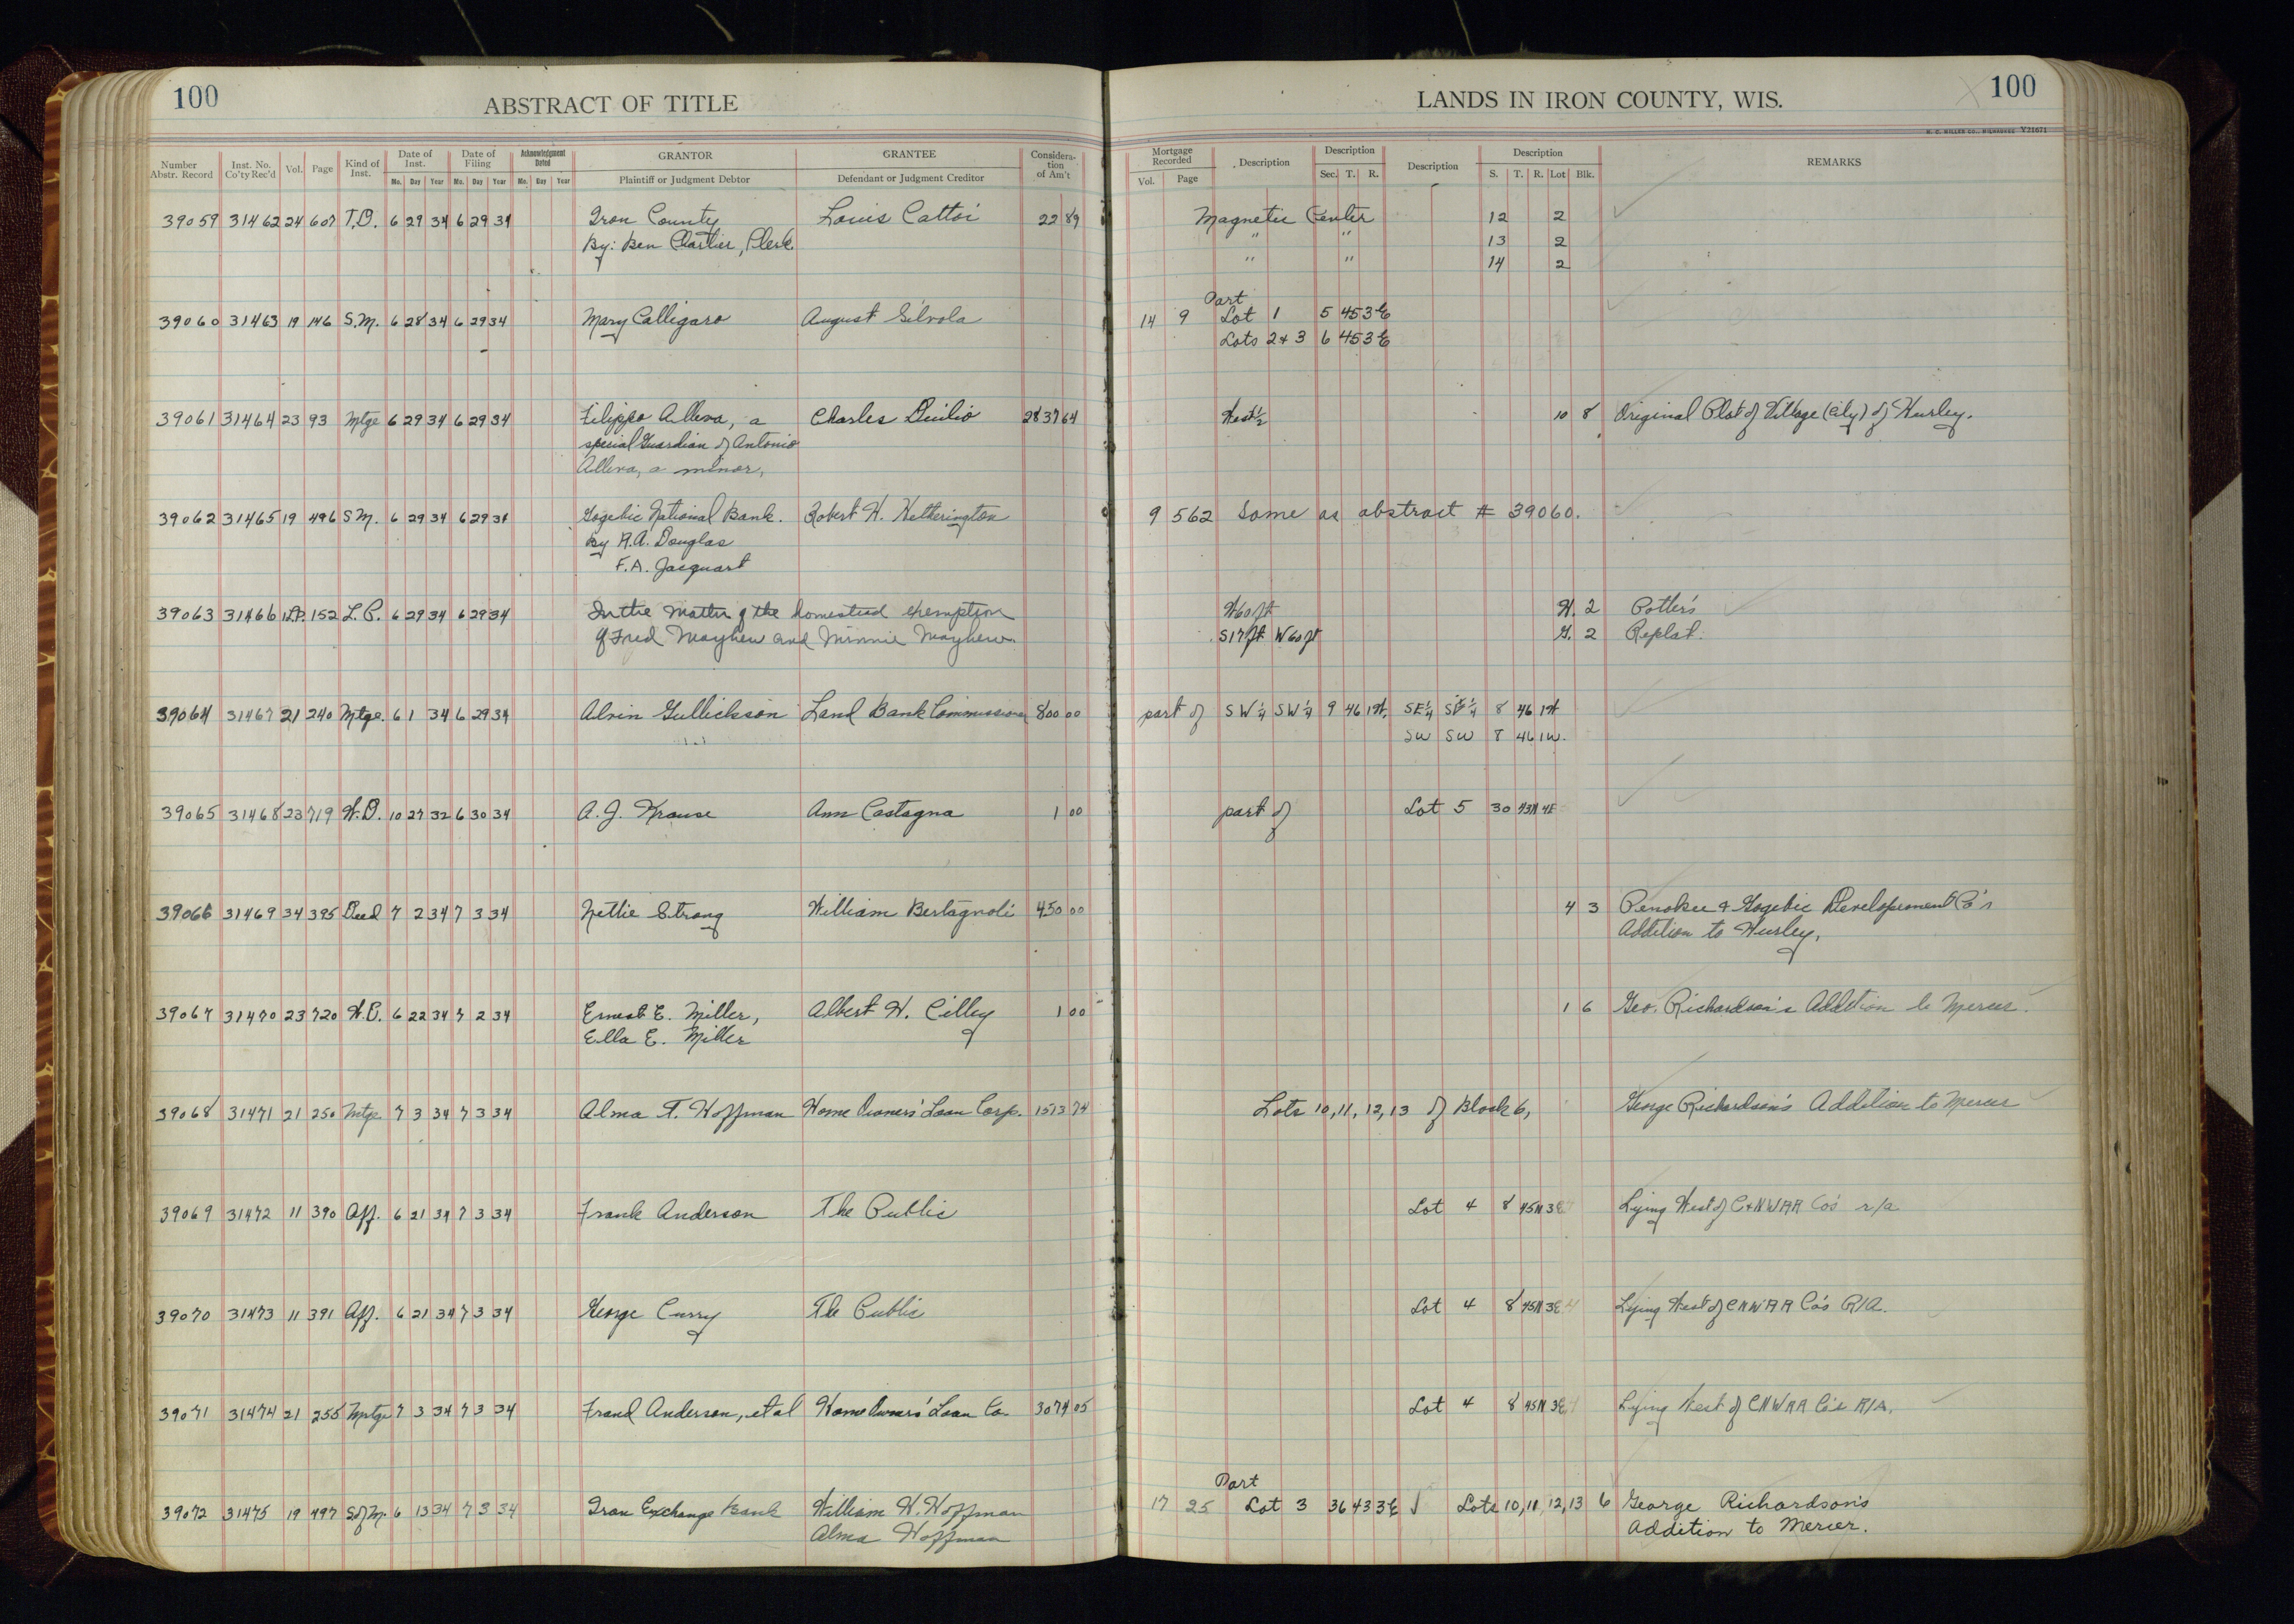 100 ABSTRACT OF TITLE LANDS IN IRON COUNTY, WIS. 100
H. C. MILLER CO., MILWAUKEE V21671
Number Abstr. Record Inst. No. Co'ty Rec'd Vol. Page Kind of Inst. Date of Inst. Date of Filing Acknowledgment Dated GRANTOR GRANTEE Consideration of Am't Mortgage Recorded Description Description Description Description REMARKS
Mo. Day Year Mo. Day Year Mo. Day Year Plaintiff or Judgment Debtor Defendant or Judgment Creditor Vol. Page Sec. T. R. S. T. R. Lot Blk.
39059 31462 24 607 T.D. 6 29 34 6 29 34 Iron County Louis Cattoi 22 89 Magnetic Center 12 2
By: Ben Chartier, Clerk " " 13 2
" " 14 2
Part
39060 31463 19 146 S.M. 6 28 34 6 29 34 Mary Calligaro August Silvola 14 9 Lot 1 5 45 3E
Lots 2 & 3 6 45 3E
39061 31464 23 93 Mtge 6 29 34 6 29 34 Filippo Alleva, a Charles Diulio 2837 64 West ½ 10 8 Original Plat of Village (City) of Hurley.
special Guardian of Antonio
Alleva, a minor,
39062 31465 19 496 SM. 6 29 34 6 29 34 Gogebic National Bank. Robert W. Hetherington 9 562 Same as abstract # 39060.
by R.A. Douglas
F.A. Jacquart
39063 31466 1L.P. 152 L.P. 6 29 34 6 29 34 In the Matter of the homestead exemption W60ft H. 2 Potter's
of Fred Mayhew and Minnie Mayhew. S17ft W60ft G. 2 Replat.
39064 31467 21 240 Mtge. 6 1 34 6 29 34 Alvin Gullickson Land Bank Commissioner 800 00 part of SW¼ SW¼ 9 46 1W. SE¼ SE¼ 8 46 1W
SW SW 8 46 1W.
39065 31468 23 719 W.D. 10 27 32 6 30 34 A. J. Krause Ann Castagna 1 00 part of Lot 5 30 43N 4E
39066 31469 34 395 Deed 7 2 34 7 3 34 Nettie Strong William Bertagnoli 450 00 4 3 Penokee & Gogebic Development Co's
Addition to Hurley.
39067 31470 23 720 W.D. 6 22 34 7 2 34 Ernest E. Miller, Albert W. Cilley 1 00 1 6 Geo. Richardson's Addition to Mercer.
Ella E. Miller
39068 31471 21 250 Mtge 7 3 34 7 3 34 Alma T. Hoffman Home Owners' Loan Corp. 1573 74 Lots 10, 11, 12, 13 of Block 6, George Richardson's Addition to Mercer
39069 31472 11 390 Aff. 6 21 34 7 3 34 Frank Anderson The Public Lot 4 8 45N 3E Lying West of C&NWRR Co's r/a
39070 31473 11 391 Aff. 6 21 34 7 3 34 George Curry The Public Lot 4 8 45N 3E Lying West of CNWRR Co's R/A.
39071 31474 21 255 Mtge 7 3 34 7 3 34 Frand Anderson, et al Home Owners' Loan Co. 3074 05 Lot 4 8 45N 3E Lying West of CNWRR Co's R/A.
Part
39072 31475 19 497 S.of M. 6 13 34 7 3 34 Iron Exchange Bank William W. Hoffman 17 25 Lot 3 36 43 3E Lots 10, 11, 12, 13 6 George Richardson's
Alma Hoffman Addition to Mercer.